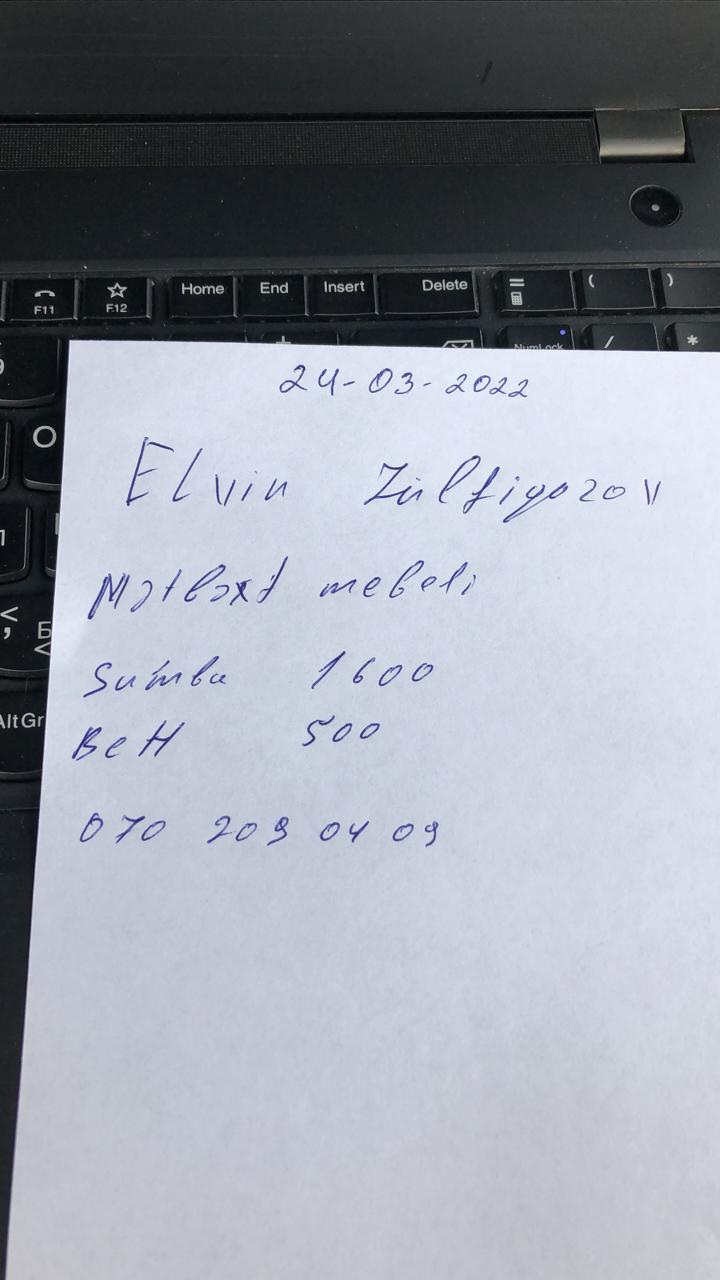 F11 F12 Home End Insert Delete = ( )
NumLock / *
24-03-2022
O
Elvin Zülfigarov
Mətbəxt mebeli
AltGr
Summa 1600
BeH 500
070 209 04 09